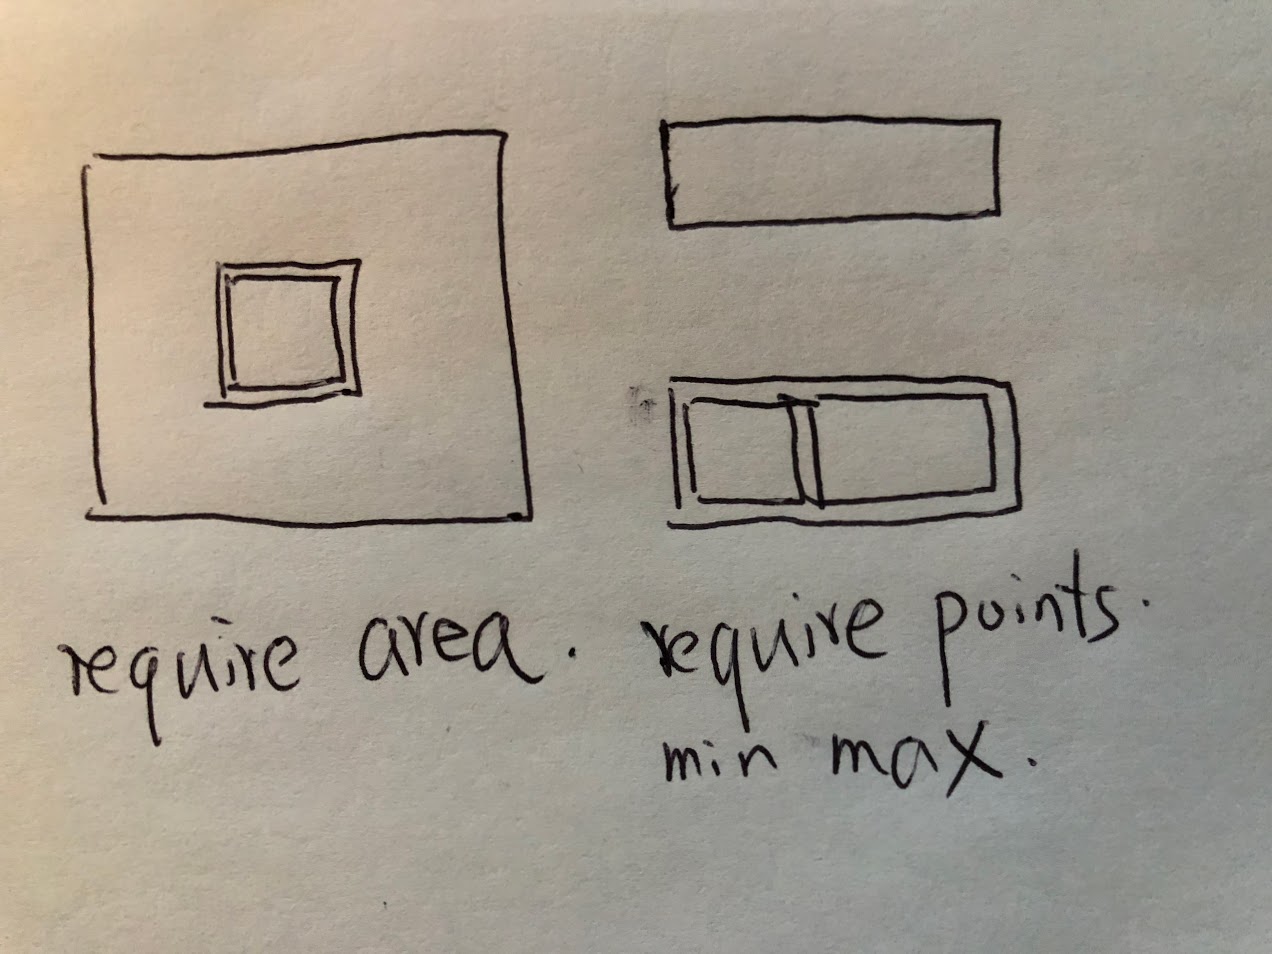 require area.
require points.
min max.